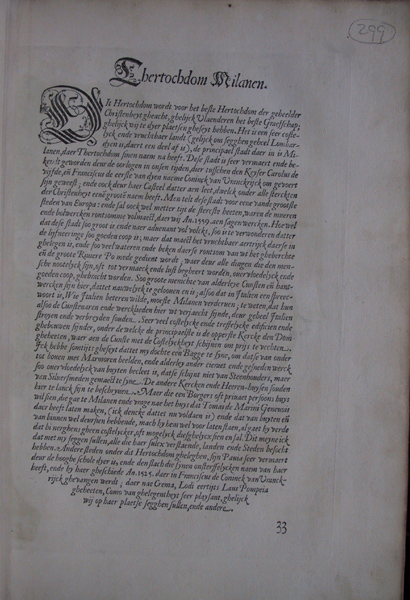 299
Thertochdom Milanen.
Dit Hertochdom wordt voor het beste Hertochdom der geheelder
Christenheyt gheacht, ghelijck Vlaenderen het beste Graefschap,
ghelijck wij te dyer plaetsen gheseyt hebben. Het is een seer costelijck
ende vruchtbaer landt (gelijck om segghen geheel Lombardyen
is, daert een deel af is), de principael stadt daer in is Milanen,
daer Thertochdom sinen naem na heeft. Dese stadt is seer vermaert ende bekent
geworden deur de oorlogen in onsen tijden, dier tusschen den Keyser Carolus de
vijfste, en Franciscus de eerste van dyen nacme Coninck van Vranckrijck om gevoert
sijn geweest; ende oock deur haer Casteel datter aen leet, dwelck onder alle stercken
der Christenheyt eenē groote naem heeft. Men telt dese stadt voor een van de grootste
steden van Europa: ende sal oock wel metter tijt de sterckste heeten, waren de mueren
ende bolwercken rontsomme volmaect, daer wij An. 1559. aen sagen wercken. Hoe wel
dat dese stadt soo groot is, ende naer advenant vol volckx, soo ist te verwonderen datter
de lijftocht soe goeden coop is; maer dat maect het vruchtbaer aertrijck daerse in
ghelegen is, ende soe veel wateren ende beken daerse rontsom van wt het gheberchte
en de groote Riviere Po mede gedient wordt; waer deur alle dingen die den menschen
nootelijck sijn, oft tot vermaeck ende lust begheert worden, overvloedelijck ende
goeden coop, ghebracht worden. Soo groote menichte van alderleye Cunsten en hantwercken
sijn hier, dattet nauwelijckx te gelooven en is; alsoo dat in Italien een spreecwoort
is, Wie Italien beteren wilde, moeste Milanen verderven; te weten, dat hun
alsoo de Cunstenaren ende wercklieden hier wt verjaecht sijnde, deur geheel Italien
stroyen ende verbreyden souden. Seer veel costelijcke ende treffelijcke edificien ende
ghebouwen sijnder, onder de welcke de principaelste is de opperste Kercke den Dom
gheheeten, waer aen de Cunste met de Costelijckheyt schijnen om prijs te vechten.
Ick hebbe somtijts ghesien dattet my dochte een Bagge te sijne, om datse van onder
tot boven met Marmoren beelden, ende alderley ander cieraet ende gesneden werck
soo overvloedelijck van buyten becleet is, datse schijnt niet van Steenhouders, maer
van Silversmeden gemaect te sijne. De andere Kercken ende Heeren-huysen souden
hier te lanck sijn te beschrijven. Maer die een Burgers oft privaet persoons huys
wil sien, die gae te Milanen ende vrage nae het huys dat Tomas de Marini Genevois
daer heeft laten maken, (ick dencke dattet nu voldaen is) ende dat van buyten en
van binnen wel doorsien hebbende, mach hy hem wel voor laten staen, al gaet hy verde
dat hi nerghens gheen costelijcker, oft mogelijck diesghelijcx sien en sal. Dit meyne ick
dat met my seggen sullen, alle die haer sulcx verstaende, landen ende Steden besocht
hebben. Andere steden onder dit Hertochdom gheleghen, sijn Pavia seer vermaert
deur de hooghe schole dyer is, ende den slach die synen onsterffelycken naem van haer
heeft, ende by haer gheschiede An. 1525. daer in Franciscus de Coninck van Vranckrijck
ghevangen werdt; daer nae Crema, Lodi eertijts Laus Pompeia
gheheeten, Como van ghelegentheyt seer playsant, ghelijck
wij op haer plaetse segghen sullen, ende andere.
33